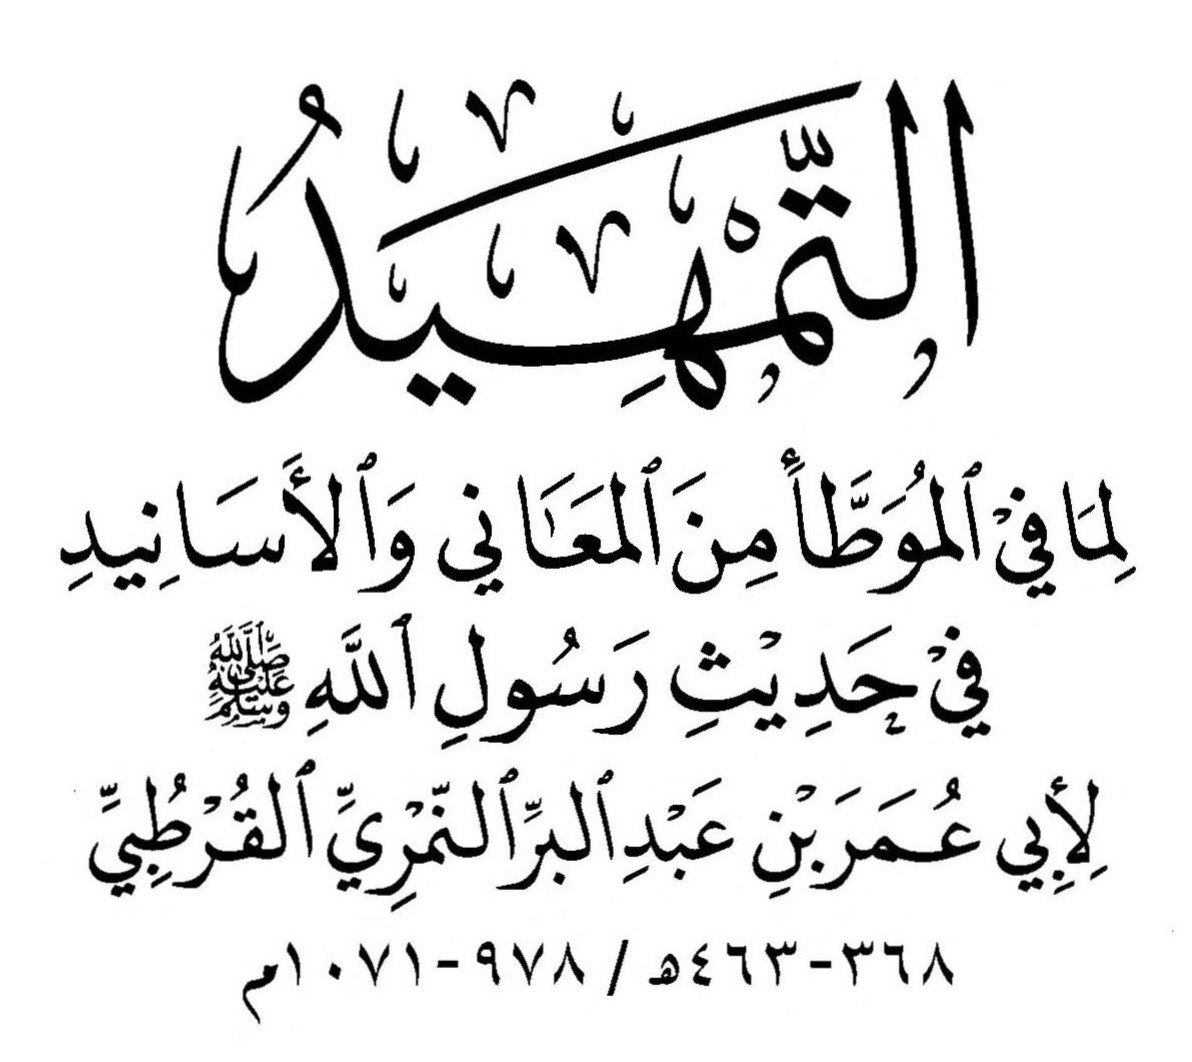 التَّمْهِيدُ
لِمَا فِيْ ٱلْمُوَطَّأِ مِنَ ٱلْمَعَانِي وَٱلأَسَانِيدِ
فِيْ حَدِيْثِ رَسُولِ ٱللَّهِ ﷺ
لِأَبِي عُمَرَ بْنِ عَبْدِ ٱلْبَرِّ ٱلنَّمْرِيِّ ٱلْقُرْطُبِيِّ
٣٦٨-٤٦٣هـ / ٩٧٨-١٠٧١م